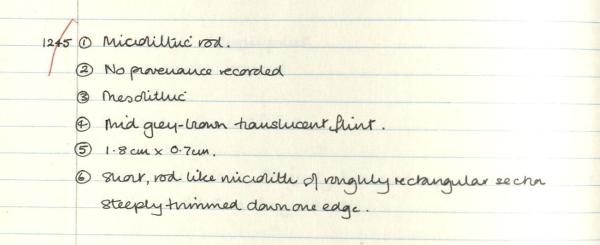 1245 ① Microlithic rod.
② No provenance recorded
③ Mesolithic
④ Mid grey-brown translucent flint.
⑤ 1.8cm x 0.7cm.
⑥ Short, rod like microlith of roughly rectangular section
steeply trimmed down one edge.